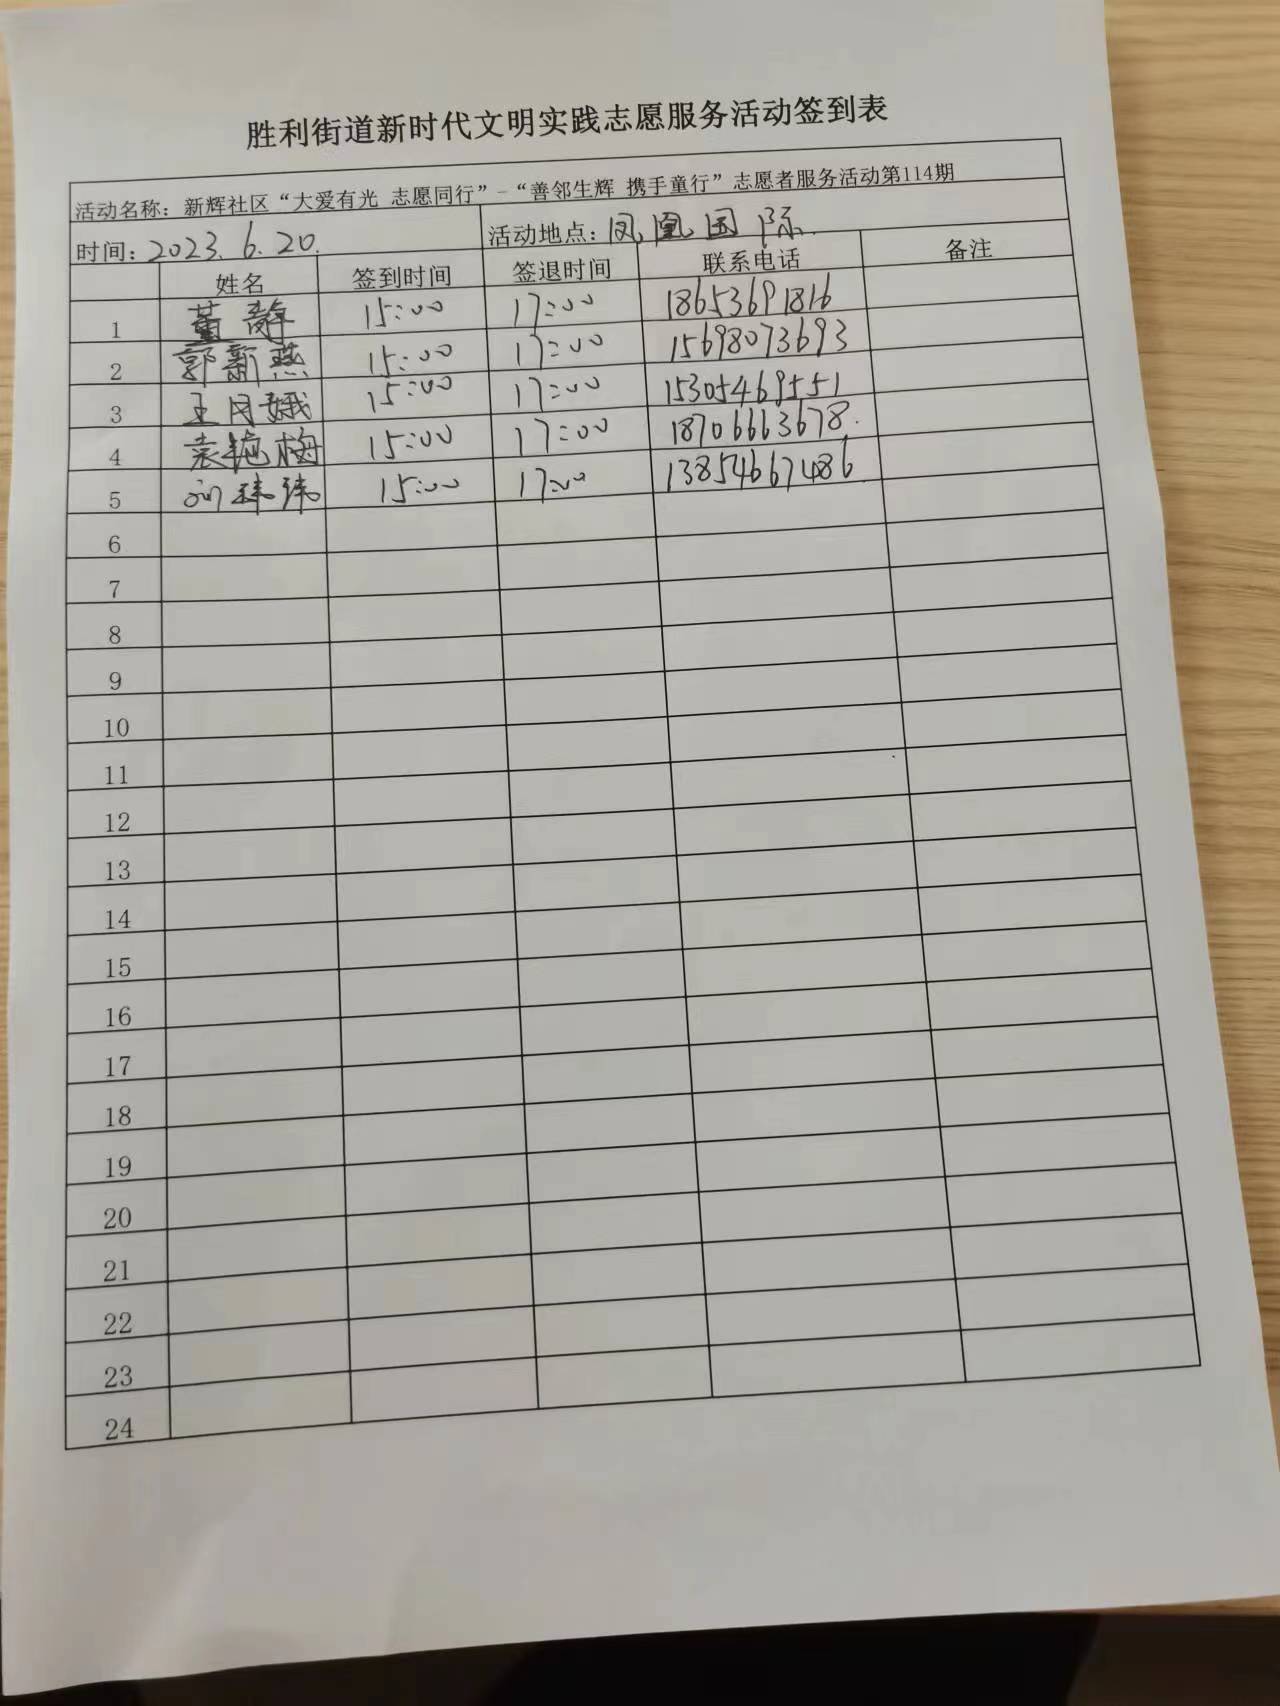 胜利街道新时代文明实践志愿服务活动签到表
活动名称：新辉社区“大爱有光 志愿同行”-“善邻生辉 携手童行”志愿者服务活动第114期
时间：2023.6.20. 活动地点：凤凰国际
姓名 签到时间 签退时间 联系电话 备注
1 董静 15:00 17:00 18653691816
2 郭新燕 15:00 17:00 15698073693
3 王月娥 15:00 17:00 15305469551
4 袁艳梅 15:00 17:00 18706663678.
5 刘玮玮 15:00 17:00 13854667486
6
7
8
9
10
11
12
13
14
15
16
17
18
19
20
21
22
23
24